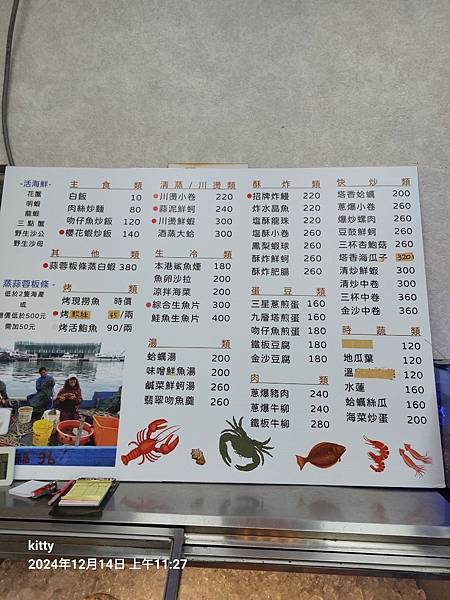 -活海鮮-
花蟹
明蝦
龍蝦
三點蟹
野生沙公
野生沙母
主食類
白飯 10
肉絲炒麵 80
吻仔魚炒飯 120
櫻花蝦炒飯 140
其他類
蒜蓉板條蒸白蝦 380
蒸蒜蓉板條
低於2隻海產
或
總價低於500元
需加50元
烤類
烤現撈魚 時價
烤 /兩
烤活鮑魚 90/兩
清蒸/川燙類
川燙小卷 220
蒜泥鮮蚵 240
川燙鮮蝦 300
酒蒸大蛤 300
生冷類
本港鯊魚煙 180
魚卵沙拉 200
涼拌海菜 200
綜合生魚片 300
鮭魚生魚片 400
湯類
蛤蠣湯 200
味噌鮮魚湯 200
鹹菜鮮蚵湯 260
翡翠吻魚羹 260
酥炸類
招牌炸鰻 220
炸水晶魚 220
塩酥龍珠 220
塩酥小卷 260
鳳梨蝦球 260
酥炸鮮蚵 260
酥炸肥腸 260
蛋豆類
三星蔥煎蛋 160
九層塔煎蛋 160
吻仔魚煎蛋 180
鐵板豆腐 160
金沙豆腐 180
肉類
蔥爆豬肉 240
蔥爆牛柳 240
鐵板牛柳 280
快炒類
塔香蛤蠣 200
蔥爆小卷 260
爆炒螺肉 260
豆鼓鮮蚵 260
三杯杏鮑菇 260
塔香海瓜子 320
清炒鮮蝦 360
清炒中卷 360
三杯中卷 360
金沙中卷 360
時蔬類
120
地瓜葉 120
溫 120
水蓮 160
蛤蠣絲瓜 160
海菜炒蛋 200
kitty
2024年12月14日 上午11:27